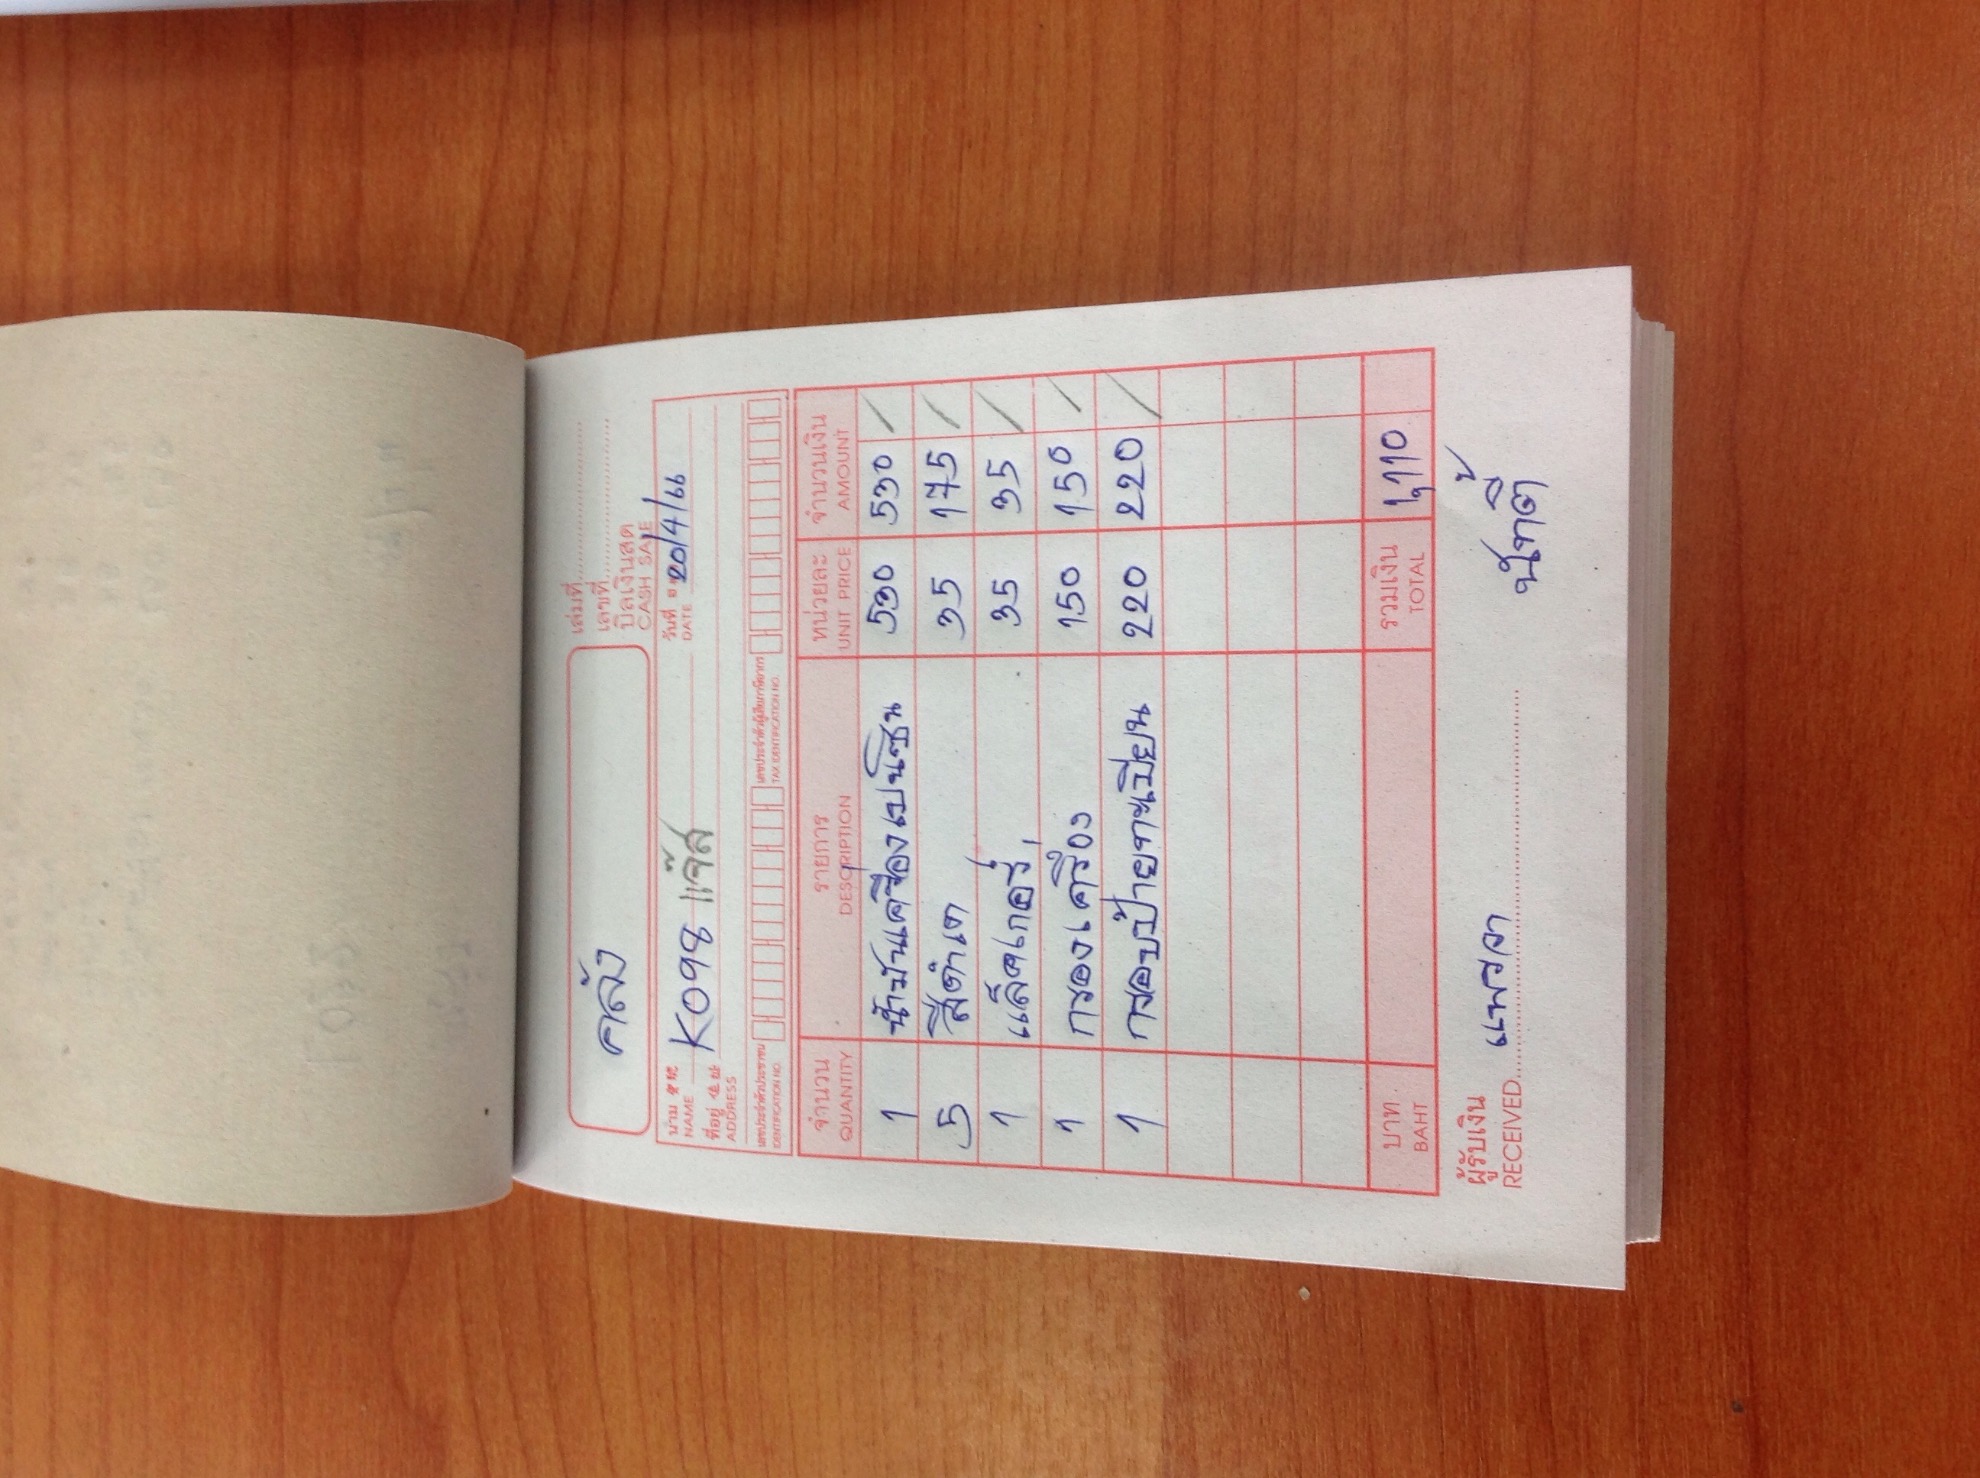 เล่มที่
เลขที่
บิลเงินสด
CASH SALE
คลัง
นาม
NAME
K098 แจ๊ส
วันที่
DATE
20/4/66
ที่อยู่
ADDRESS
เลขประจำตัวประชาชน
IDENTIFICATION NO.
เลขประจำตัวผู้เสียภาษีอากร
TAX IDENTIFICATION NO.
จำนวน รายการ หน่วยละ จำนวนเงิน
QUANTITY DESCRIPTION UNIT PRICE AMOUNT
1 น้ำมันเครื่องเบนซิน 530 530 /
5 สีดำเต 35 175 /
1 แล็คเกอร์ 35 35 /
1 กรองเครื่อง 150 150 /
1 กรอบป้ายทะเบียน 220 220 /
บาท รวมเงิน 1,110
BAHT TOTAL
ผู้รับเงิน
RECEIVED
แพรวา